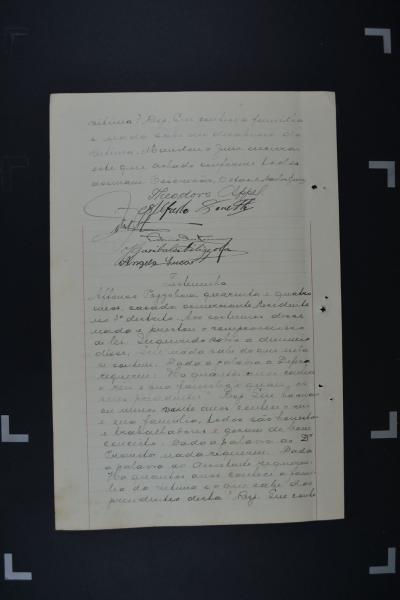 victima? Resp. Que conhece a familia
e nada sabe em desabono da
victima. Mandou o Juiz encerrar
este que achado conforme todos
assinam.
Theodoro Appel
Alfredo
Angelo Lucas
Testemunha
Affonso quarenta e quatro
annos, casado, comerciante, residente
no 3º districto. Aos costumes disse
nada e prestou o compromisso
da lei. Inquirido sobre a denuncia
disse: Que nada sabe do que nela
se contem. Dada a palavra a Defesa
requereu: "Ha quantos anos conhece
o réu e sua familia e quais os
seus precedentes?" Resp. Que ha mais
ou menos vinte anos conhece o réu
e sua familia, todos são honestos
e trabalhadores e gozam de bom
conceito. Dada a palavra ao Dr.
Promotor nada requereu. Dada
a palavra do Assistente requereu:
"Ha quantos anos conhece a fami-
lia da victima e o que sabe dos
precedentes desta?" Resp. Que conhe